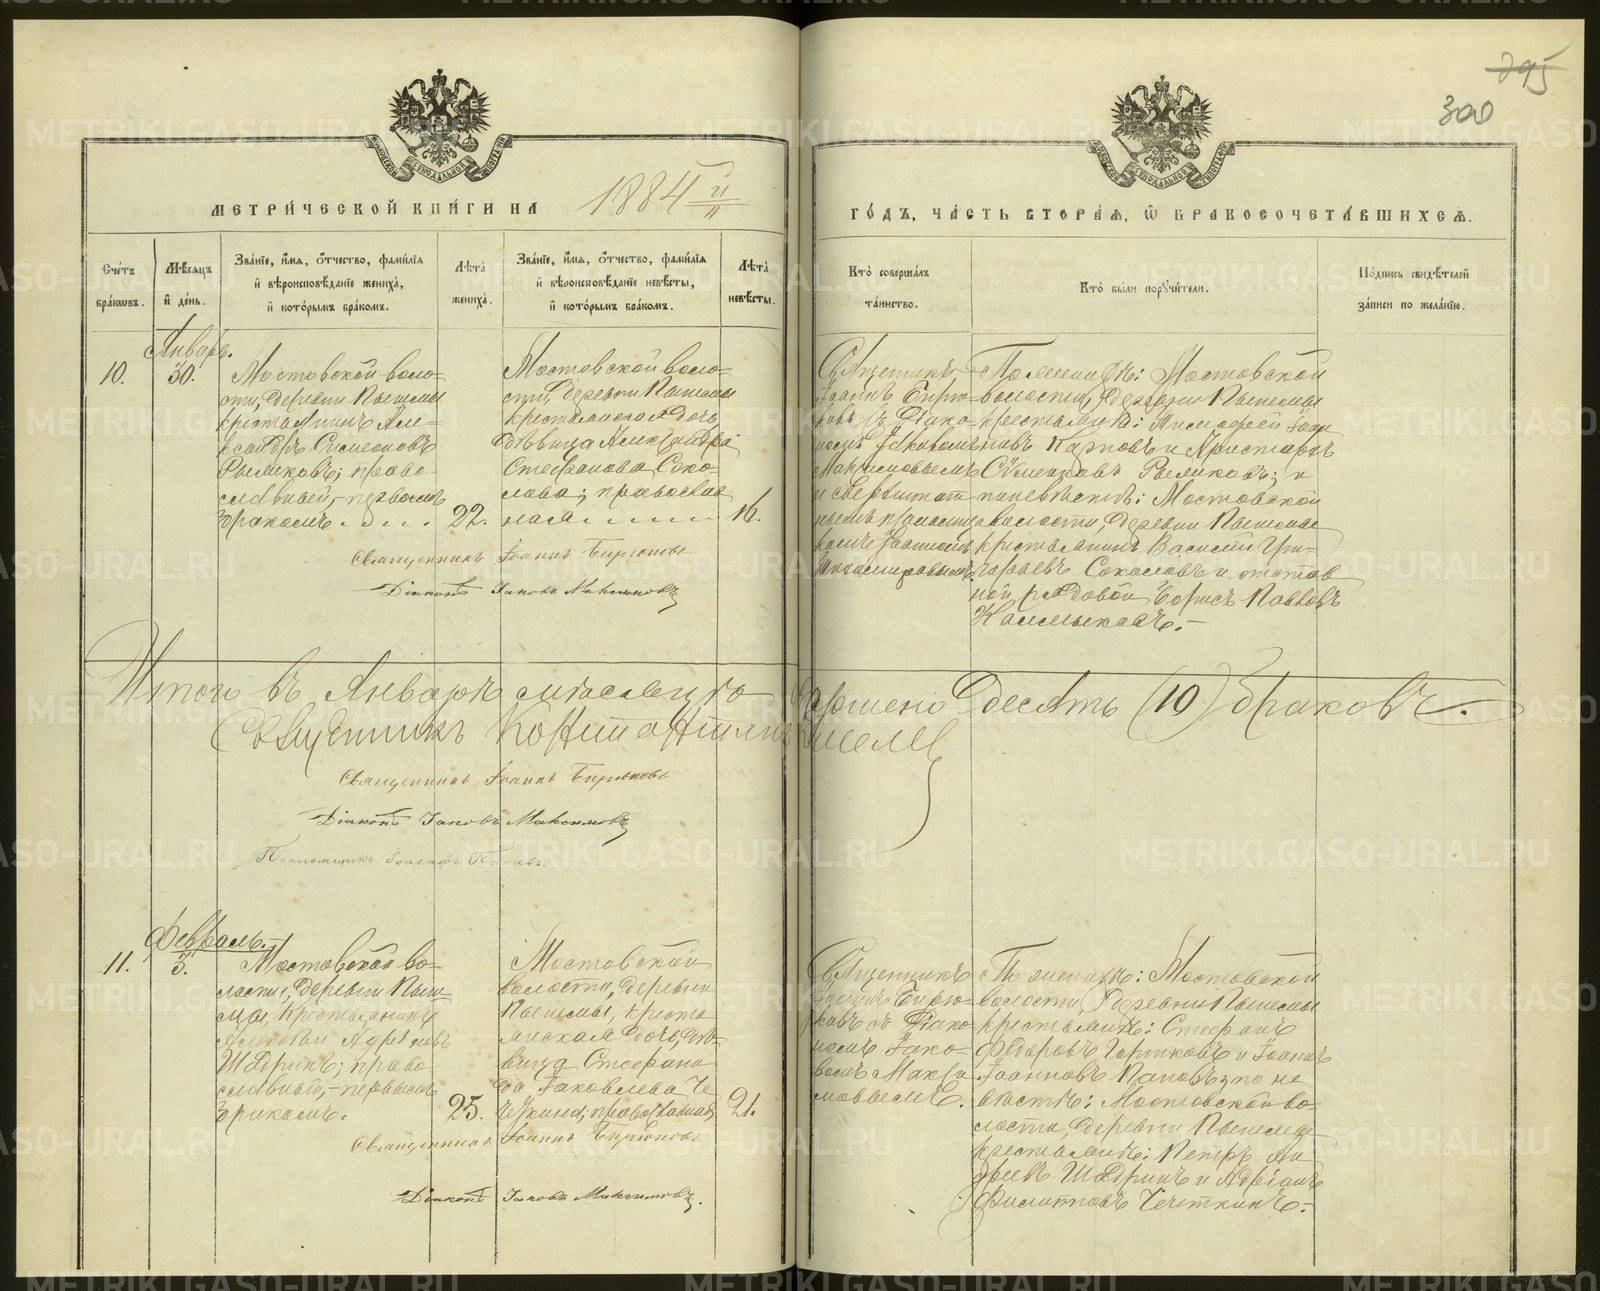 295
300
МЕТРИ́ЧЕСКОЙ КНИ́ГИ НА 1884
ГО́ДЪ, ЧА́СТЬ ВТОРА́Я, Ѿ БРАКОСОЧЕТА́ВШИХСЯ.
Счетъ браковъ.
Мѣсяцъ и день.
Зва́нїе, и́мя, о́тчество, фами́лїя и вѣроисповѣ́данїе жениха̀, и кото́рымъ бра́комъ.
Лѣта̀ жениха̀.
Зва́нїе, и́мя, о́тчество, фами́лїя и вѣроисповѣ́данїе невѣ́сты, и кото́рымъ бра́комъ.
Лѣта̀ невѣ́сты.
Кто̀ соверша́лъ та́инство.
Кто̀ бы́ли поручи́тели.
По́дпись свидѣ́телей за́писи по жела́нїю.
Январь.
10.
30.
Мостовской воло-
сти, деревни Пышмы
крестьянинъ Але-
ксандръ Симеоновъ
Рычковъ; право-
славный, первымъ
бракомъ
22.
Мостовской воло-
сти, деревни Пышмы
крестьянская дочь
дѣвица Александра
Стефанова Соко-
лова; православ
ная
16.
Священникъ
Іоаннъ Бирю-
ковъ съ діако-
номъ Іаковомъ
Максимовымъ
По женихѣ: Мостовской
волости, деревни Пышмы
крестьяне: Тимофей Іоан
новъ Карповъ и Аристархъ
Симеоновъ Рычковъ; и
по невѣстѣ: Мостовской
волости, деревни Пышмы
крестьянинъ Василій Гри-
горьевъ Соколовъ и отстав
ной рядовой Борисъ Павловъ
Калмыковъ.
Священникъ Іоаннъ Бирюковъ
Діаконъ Іаковъ Максимовъ
Итого въ Январѣ мѣсяцѣ совершено десять (10) браковъ.
Священникъ Константинъ
Священникъ Іоаннъ Бирюковъ
Діаконъ Іаковъ Максимовъ
Псаломщикъ Іоасафъ Поповъ.
Февраль.
11.
3.
Мостовской во-
лости, деревни Пыш-
мы, крестьянинъ
Адріановъ
Шадринъ; право
славный, первымъ
бракомъ.
25.
Мостовской
волости, деревни
Пышмы, кресть
янская дочь, дѣ-
вица Стефани
да Іаковлева Че
чёткина, православная
21.
Священникъ
Іоаннъ Бирю-
ковъ съ діако-
номъ Іако-
вомъ Макси
мовымъ.
По женихѣ: Мостовской
волости, деревни Пышмы
крестьяне: Стефанъ
Федоровъ и Іоаннъ
Іоанновъ Поповъ, по не
вѣстѣ: Мостовской во-
лости, деревни Пышмы
крестьяне: Петръ Ан
дреевъ Шадринъ и Адріанъ
Филипповъ Чечеткинъ.
Священникъ Іоаннъ Бирюковъ
Діаконъ Іаковъ Максимовъ.
METRIKI.GASO-URAL.RU